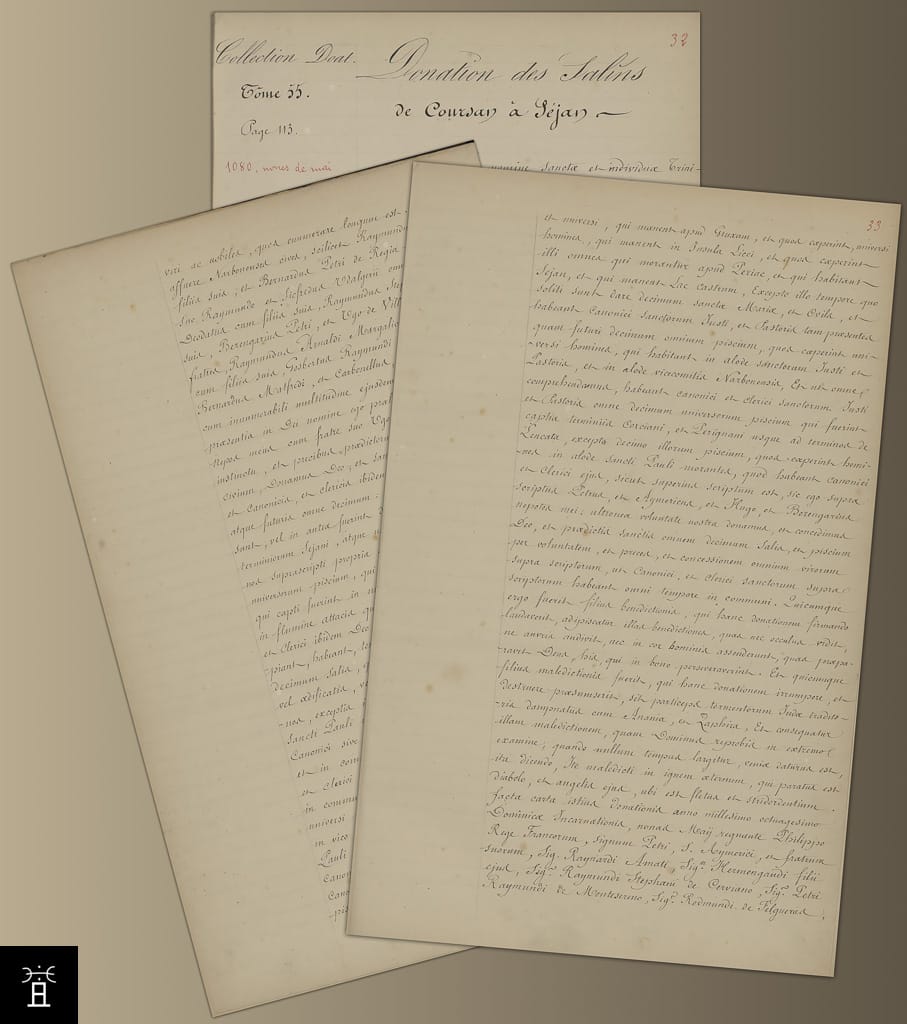 32
Collection Doat.
Donation des Salins
Tome 55.
de Coursan à Séjan
Page 113.
1080, nones de mai
nomine Sanctæ et individuæ Trini-
viri ac nobiles, quos enumerare longum est
affuere Narbonenses cives, scilicet Raymundus
filiis suis, et Bernardus Petri de Regia
suo Raymundo et Siefredus Udalgerii
Deodatus cum filiis suis, Raymundus Ste
suis, Berengarius Petri, et Ugo de Vill
fratris, Raymundus Arnaldi Margali
cum filiis suis, Gosbertus Raymundi
Bernardus Matfredi, et Carbonellus,
cum innumerabili multitudine ejusdem
præsentia in Dei nomine ego
Nepos meus cum fratre suo Ugo
instinctu, et precibus prædictorum
civium, Donamus Deo, et San
et canonicis, et clericis ibidem
atque futuris omne decimum
sant, vel in antea fuerint
terminiorum Sejani, atque
nos suprascripti propria
universorum piscium, qui
qui capti fuerint in
in flumine attacis
et Clerici ibidem Deo
piant, habeant,
decimum salis,
vel ædificatis,
nos, exceptis
sancti Pauli
Canonici sive
et in com
et clerici
in commu
universi
in vico
Pauli
Canon
Cano
pis
33
et universi, qui manent apud Gruxam, et quos ceperint, universi
homines, qui manent in Insula Licci, et quos ceperint
illi omnes qui morantur apud Periac, et qui habitant
Sejan, et qui manent Lac castrum, Excepto illo tempore quo
soliti sunt dare decimum sanctæ Mariæ, et Ovila, et
habeant Canonici sanctorum Justi, et Pastoris tam præsentes
quam futuri decimum omnium piscium, quos ceperint uni-
versi homines, qui habitant in alode sanctorum Justi et
Pastoris, et in alode vicecomitis Narbonensis, Et ut omne
comprehendamus, habeant canonici et clerici sanctorum Justi
et Pastoris omne decimum universorum piscium qui fuerint
captis terminis Corciani, et Perignani usque ad terminos de
Leucata, excepto decimo illorum piscium, quos ceperint homi-
nes in alode sancti Pauli morantes, quod habeant canonici
et Clerici ejus, sicut superius scriptum est, sic ego supra
scriptus Petrus, et Aymericus, et Hugo, et Berengarius
nepotis mei: ultronea voluntate nostra donamus, et concedimus
Deo, et prædictis sanctis omnem decimum Salis, et piscium
per voluntatem, et preces, et concessionem omnium virorum
supra scriptorum, ut Canonici, et Clerici sanctorum supra
scriptorum habeant omni tempore in communi. Quicumque
ergo fuerit filius benedictionis, qui hanc donationem firmando
laudaverit, adipiscatur illas benedictiones, quas nec occulus vidit,
ne auris audivit, nec in cor hominis assenderunt, quas præpa-
ravit Deus, his, qui in bono perseveraverint. Et quicumque
filius maledictionis fuerit, qui hanc donationem irrumpere, et
destruere præsumserit, sit particeps tormentorum Judæ tradito-
ris dampnatus cum Anania, et Zaphira, Et consequatur
illam maledictionem, quam Dominus reprobis in extremo
examine, quando nullum tempus largitur, enia daturus est,
ita dicendo, Ite maledicti in ignem æternum, qui paratus est
diabolo, et angelis ejus, ubi est fletus et stridor dentium.
facta carta istius donationis anno millesimo octuagesimo
Dominicæ Incarnationis, nonas Maij regnante Philippo
Rege Francorum, Signum Petri, S. Aymerici, et fratrum
suorum, Sig. Raynardi Amati, Sig.m Hermongaudi filii
ejus, Sig.m Raymundi Stephani de Cerviano, Sig.m Petri
Raymundi de Montesereno, Sig.m Redmundi de Felguerad,